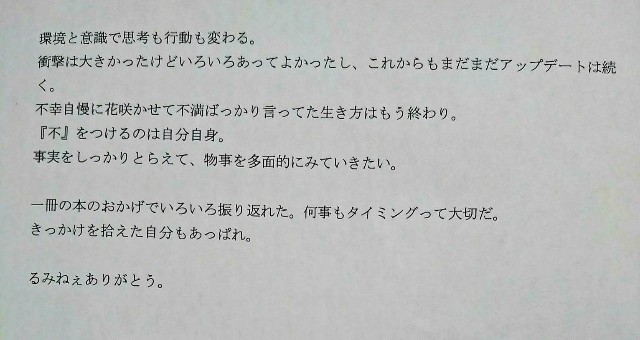 環境と意識で思考も行動も変わる。
衝撃は大きかったけどいろいろあってよかったし、これからもまだまだアップデートは続
く。
不幸自慢に花咲かせて不満ばっかり言ってた生き方はもう終わり。
『不』をつけるのは自分自身。
事実をしっかりとらえて、物事を多面的にみていきたい。
一冊の本のおかげでいろいろ振り返れた。何事もタイミングって大切だ。
きっかけを拾えた自分もあっぱれ。
るみねぇありがとう。